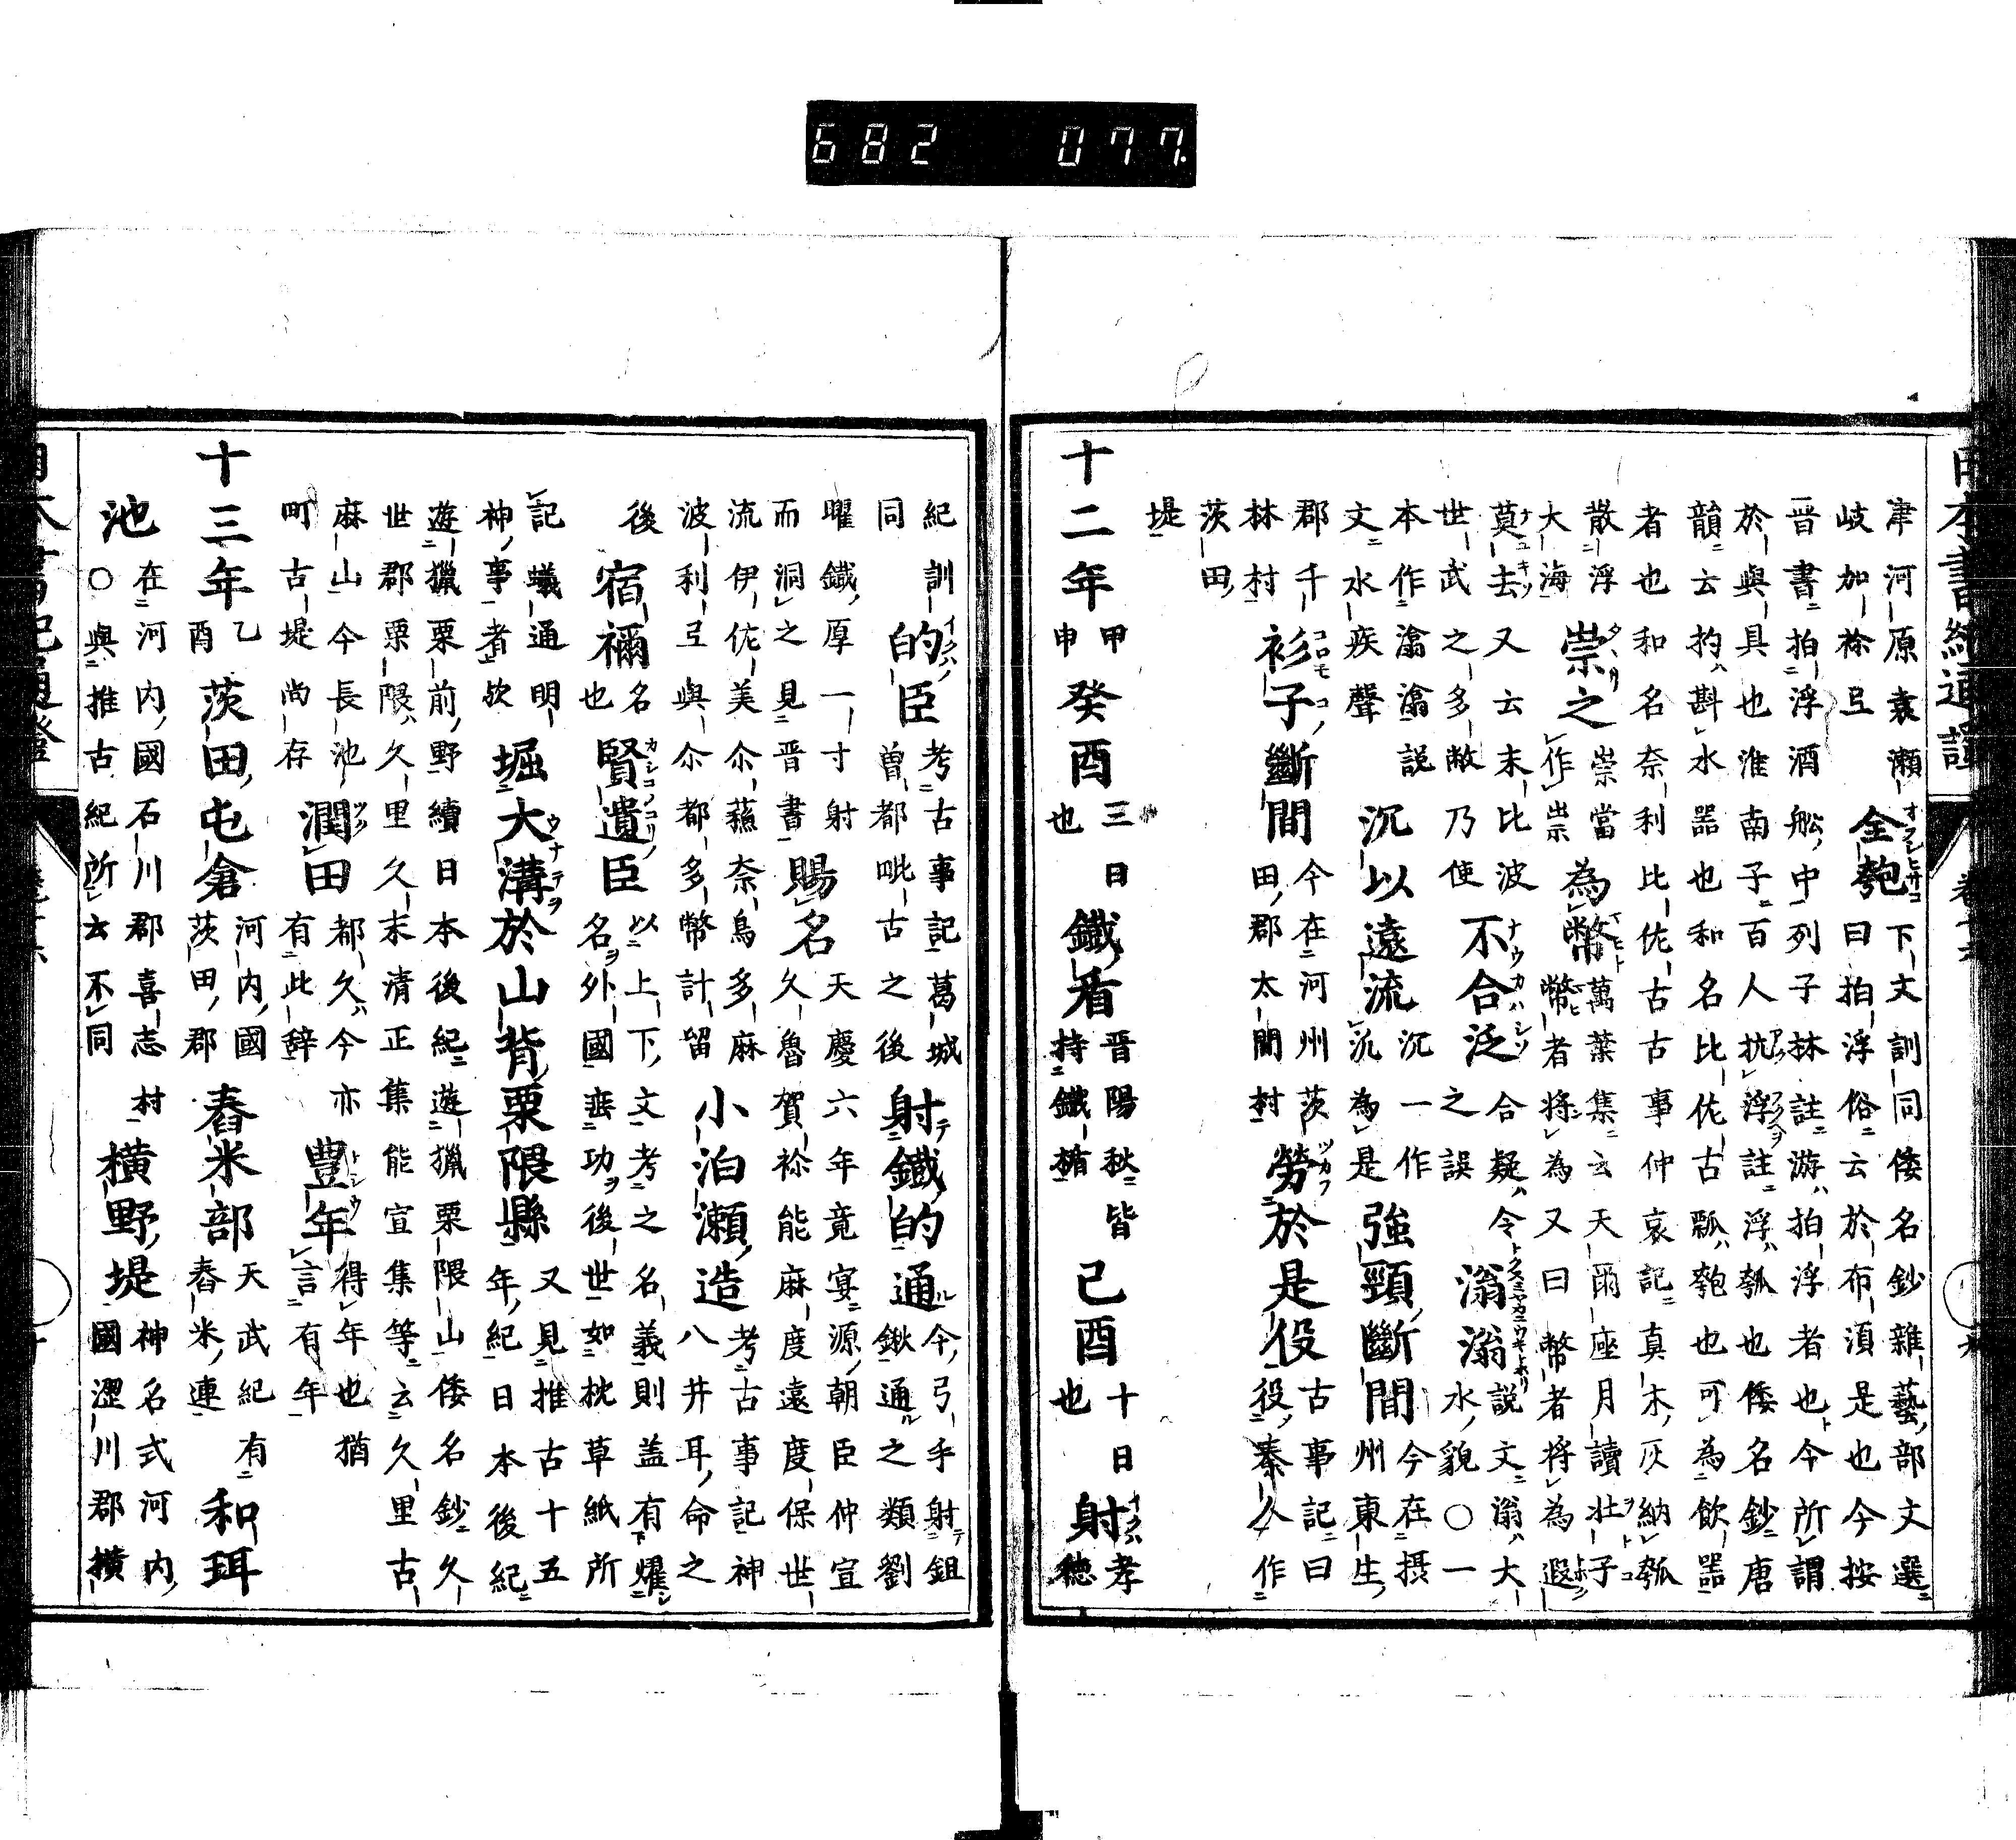 682 077.
津河原袁瀨
岐加祢𢎭
全匏
下文訓同倭名鈔雜藝部文選
曰拍浮俗云於布湏是也今按
晋書拍浮酒舩中列子林註游拍浮者也今所謂
於與具也淮南子百人抗浮註浮瓠也倭名鈔唐
韻云杓斟水器也和名比佐古瓢匏也可為飲器
者也和名奈利比佐古古事仲哀記真木灰納瓠
散浮
大海
祟之
祟當
作崇
為幣
萬葉集云天爾座月讀壮子
幣者將為又曰幣者将為遐
莫去又云末比波
世武之多敝乃使
不合泛
合疑令
之誤
滃滃
説文滃大
水貌〇一
本作滃滃説
文水疾聲
沉以遠流
沉一作
沉為是
強頸斷間
今在摂
州東生
郡千
林村
衫子斷間
今在河州茨
田郡太間村
勞於是役
古事記曰
役秦人作
茨田
堤
十二年
甲
申
癸酉
三日
也
鐵盾
晋陽秋皆
持鐵楯
己酉
十日
也
射
孝
德
紀訓
同
的臣
考古事記葛城
曽都毗古之後
射鐵的通
今弓手射鉏
鍬通之類劉
曜鐵厚一寸射
而洞之見晋書
賜名
天慶六年竟宴源朝臣仲宣
久魯賀祢能麻度遠度保世
流伊佐美尒蘓奈鳥多麻
波利𢎭與尒都多幣計留
小泊瀨造
考古事記神
八井耳命之
後
宿禰
名
也
賢遺臣
以上下文考之名義則盖有燿
名外國垂功後世如枕草紙所
記蟻通明
神事者歟
堀大溝於山背栗隈縣
又見推古十五
年紀日本後紀
遊獵栗前野續日本後紀遊獵栗隈山倭名鈔久
世郡栗隈久里久末清正集能宣集等云久里古
麻山今長池
町古堤尚存
潤田
都久今亦
有此辞
豊年
得年也猶
言有年
十三年
乙
酉
茨田屯倉
河内國
茨田郡
舂米部
天武紀有
舂米連
和珥
池
在河内國石川郡喜志村
〇與推古紀所云不同
横野堤
神名式河内
國澀川郡横